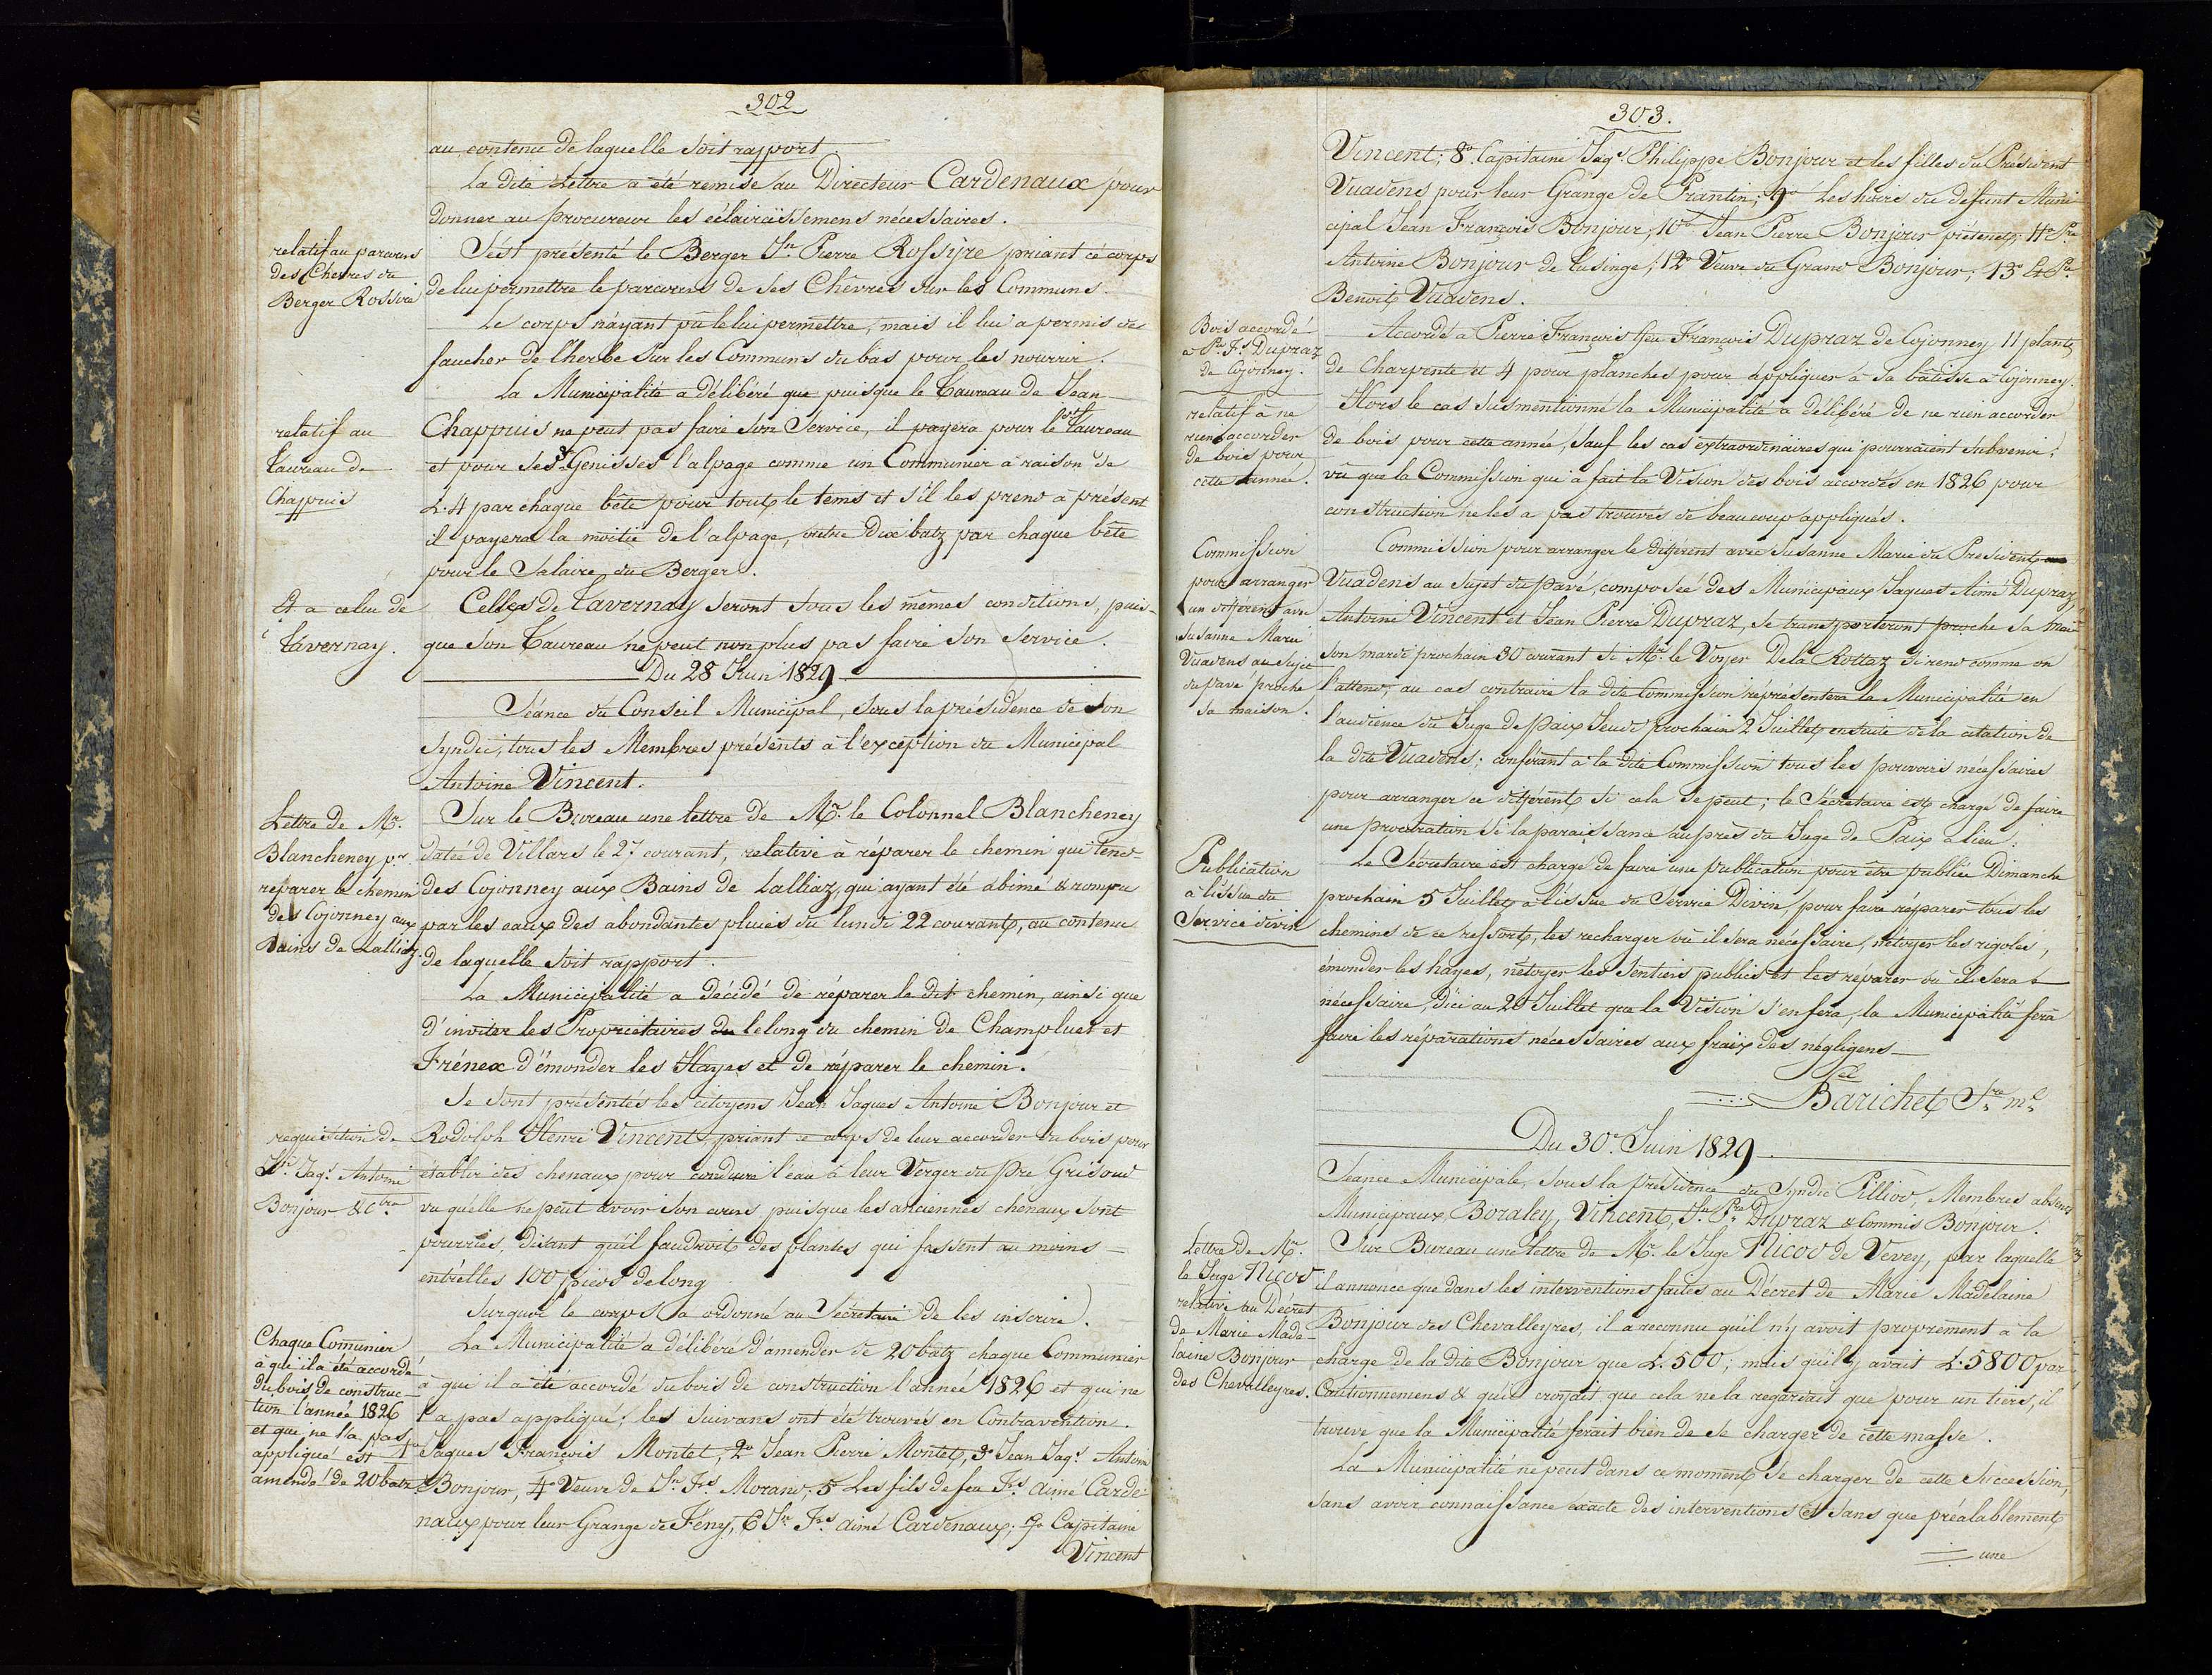 302
au contenu de laquelle soit rapport.
La dite Lettre a été remise au Directeur Cardenaux pour
donner au procureur les éclaircissemens nécessaires.
relatif au parcours
des Chevres du
Berger Rossire
S'est présenté le Berger Jn Pierre Rossyre priant ce corps
de lui permettre le parcours de ses Chêvres sur les Communs.
Le corps n'ayant pû le lui permettre, mais il lui a permis de
faucher de l'herbe sur les Communs du bas pour les nourrir.
La Municipalité a délibéré que puisque le Taureau de Jean
relatif au
taureau de
Chappuis
Chappuis ne peut pas faire son Service, il payera pour le dt taureau
et pour ses 3 Genisses l'alpage comme un Communier à raison de
L. 4 par chaque bête pour tout le tems et s'il les prend à présent
il payera la moitié de l'alpage, outre Dix batz par chaque bête
pour le Salaire du Berger.
Et a celui de
Tavernay.
Celles de Tavernay seront sous les mêmes conditions, puis-
que son Taureau ne peut non plus pas faire son Service.
Du 28 Juin 1829
Séance du Conseil Municipal, sous la présidence de son
Syndic, tous les Membres présents à l'exception du Municipal
Antoine Vincent.
Lettre de Mr.
Blancheney pr.
réparer le chemin
des Cojonney aux
Bains de Lalliaz
Sur le Bureau une lettre de Mr. le Colonnel Blancheney
datée de Villars le 27 courant, relative à réparer le chemin qui tend
des Cojonney aux Bains de Lalliaz, qui ayant été abimé & rompu
par les eaux des abondantes pluies du lundi 22 courant, au contenu
de laquelle soit rapport.
La Municipalité a décidé de réparer le dit chemin, ainsi que
d'inviter les Propriétaires du le long du chemin de Champluet et
Frénex d'émonder les Hayes et de réparer le chemin.
Se sont présentés les citoyens Jean Jaques Antoine Bonjour et
requisition de
Jn. Jaqs. Antoine
Bonjour &c
Rodolph Henri Vincent priant ce corps de leur accorder du bois pour
établir des chenaux pour conduire l'eau à leur Verger du pre Grisoud
vu qu'elle ne peut avoir son cours puisque les anciennes chenaux sont
pourries, disant qu'il faudroit des plantes qui fassent au moins
entr'elles 100 pieds de long.
Surquoi le corps a ordonné au Sécretaire de les inscrire.
Chaque Comunier
à qui il a été accordé
du bois de construc-
tion l'année 1826
et que ne l'a pas
appliqué est
amendé de 20 batz
La Municipalité a délibéré d'amender de 20 batz chaque Communier
à qui il a été accordé du bois de construction l'année 1826 et qui ne
l'a pas appliqué; les suivans ont été trouvés en Contravention.
1o Jaques François Montet, 2o Jean Pierre Montet, 3o Jean Jaqs. Antoine
Bonjour, 4o Veuve de Jn Frs. Morand, 5o Les fils de feu Frs. Aimé Carde
naux pour leur Grange de Fény, 6 Jn Frs aimé Cardenaux; 7o Capitaine
Vincent
303.
Vincent; 8o. Capitaine Jaqs. Philippe Bonjour et les filles du Président
Vuadens pour leur Grange de Prantin; 9o Les hoirs du défunt Muni
cipal Jean François Bonjour; 10o Jean Pierre Bonjour piétonet; 11o Pre
Antoine Bonjour de Lusinge; 12o Veuve du Grand Bonjour; 13o Pre
Benoit Vuadens.
Bois accordé
a Pre. Fs. Dupraz
de Cojonney.
Accordé a Pierre François feu François Dupraz de Cojonney 11 plantes
de Charpente et 4 pour planches pour appliquer à sa bâtisse à Cojonney.
relatif à ne
rien accorder
de bois pour
cette année.
Hors le cas susmentionné la Municipalité a délibéré de ne rien accorder
de bois pour cette année, sauf les cas extraordinaires qui pourraient subvenir;
vû que la Commission qui a fait la Vision des bois accordés en 1826 pour
construction ne les a pas trouvés de beaucoup appliqués.
Commission
pour arranger
un différent avec
Susanne Marie
Vuadens au sujet
du pavé proche
sa maison.
Commission pour arranger le différent avec Susanne Marie du President
Vuadens au sujet du pavé, composée des Municipaux Jaques Aimé Dupraz,
Antoine Vincent et Jean Pierre Dupraz, se transporteront proche sa mai-
son mardi prochain 30 courant si Mr. le Voyer Dela Rottaz s'i rend comme on
l'attend, au cas contraire la dite Commission représentera la Municipalité en
l'audience du Juge de paix Jeudi prochain 2 Juillet ensuite de la citation de
la dite Vuadens; conférant à la dite Commission tous les pouvoirs nécessaires
pour arranger ce différent si cela se peut; le Sécretaire est chargé de faire
une procuration si la paraissance auprès du Juge de Paix a lieu.
Publication
à l'issue du
Service divin
Le Sécretaire est chargé de faire une publication pour être publiée Dimanche
prochain 5 Juillet à l'issue du Service Divin, pour faire réparer tous les
chemins de ce ressort, les recharger où il sera nécessaire, nétoyer les rigoles,
émonder les hayes, nétoyer les sentiers publics et les réparer où il sera
nécessaire, d'ici au 20 Juillet que la Vision s'en fera, la Municipalité fera
faire les réparations nécessaires aux fraix des négligens
Barichet Sre. ml.
Du 30e. Juin 1829
Séance Municipale, sous la présidence du Syndic Pilliod, Membres absens
Municipaux Boraley, Vincent, Jn. Pre Dupraz & Commis Bonjour.
Lettre de Mr.
le Juge Nicod
relative au Décret
de Marie Made-
laine Bonjour
des Chevalleyres.
Sur Bureau une lettre de Mr. le Juge Nicod de Vevey, par laquelle
il annonce que dans les interventions faites au Décret de Marie Madelaine
Bonjour des Chevalleyres, il a reconnu qu'il n'y avoit proprement à la
charge de la dite Bonjour que L. 500; mais qu'il y avait L. 5800 par
Cautionnemens & qu'il croyait que cela ne la regardait que pour un tiers, il
trouve que la Municipalité ferait bien de se charger de cette masse.
La Municipalité ne peut dans ce moment se charger de cette succession,
sans avoir connaissance exacte des interventions et sans que préalablement
une